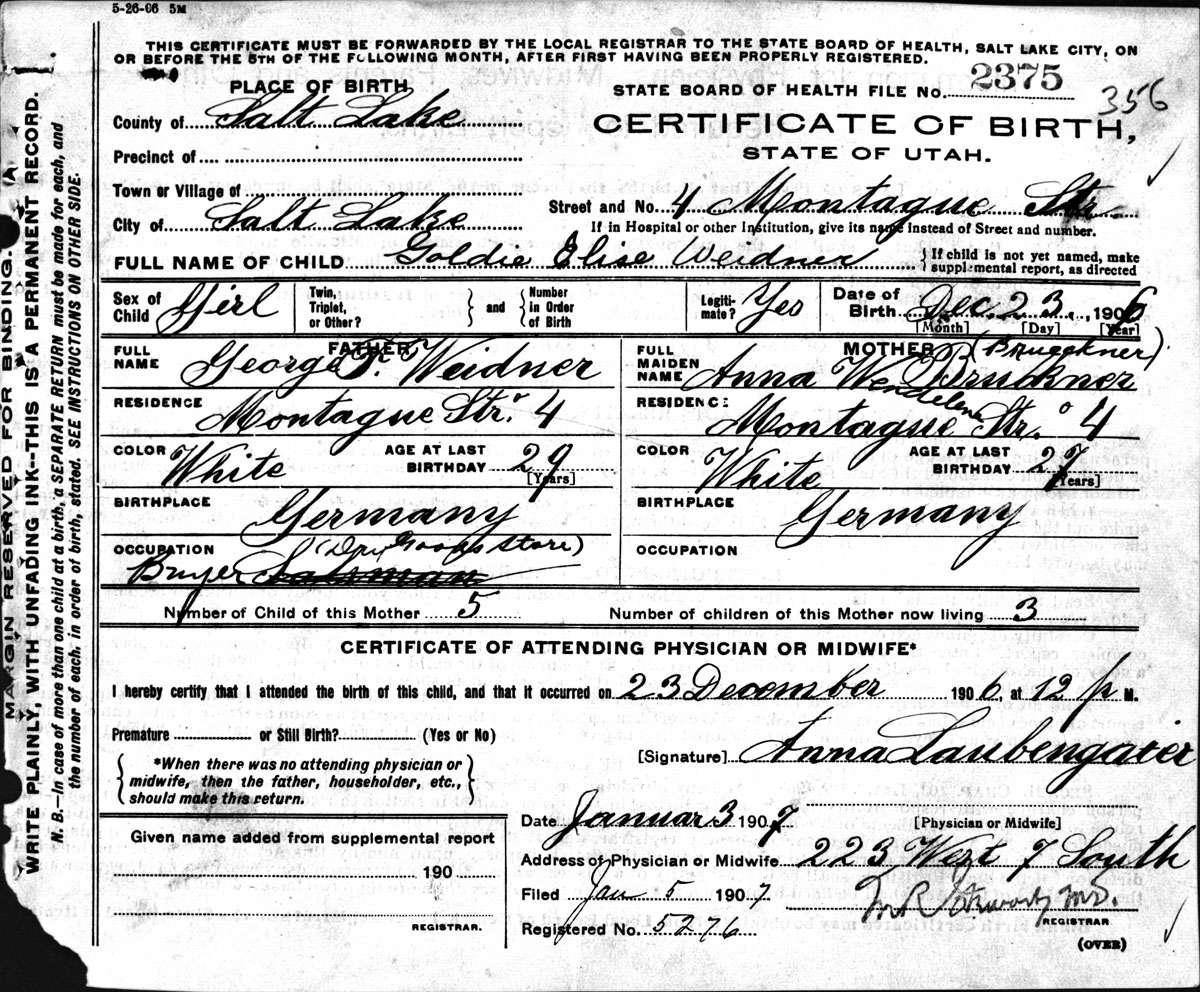 5-26-06 5M
THIS CERTIFICATE MUST BE FORWARDED BY THE LOCAL REGISTRAR TO THE STATE BOARD OF HEALTH, SALT LAKE CITY, ON
OR BEFORE THE 5TH OF THE FOLLOWING MONTH, AFTER FIRST HAVING BEEN PROPERLY REGISTERED.
PLACE OF BIRTH
STATE BOARD OF HEALTH FILE No. 2375
356
County of Salt Lake
CERTIFICATE OF BIRTH,
STATE OF UTAH.
Precinct of
Town or Village of
Street and No. 4 Montague Str.
City of Salt Lake
If in Hospital or other Institution, give its name instead of Street and number.
FULL NAME OF CHILD Goldie Elise Weidner
If child is not yet named, make
supplemental report, as directed
Sex of Child Girl
Twin, Triplet, or Other?
and
Number in Order of Birth
Legitimate? Yes
Date of Birth Dec. 23, 1906
[Month] [Day] [Year]
FATHER
FULL NAME George F. Weidner
RESIDENCE Montague Str. 4
COLOR White
AGE AT LAST BIRTHDAY 29
[Years]
BIRTHPLACE Germany
OCCUPATION (Dry Goods Store)
Buyer Salsman
MOTHER (Brueckner)
FULL MAIDEN NAME Anna Wendelena Bruckner
RESIDENCE Montague Str. 4
COLOR White
AGE AT LAST BIRTHDAY 27
[Years]
BIRTHPLACE Germany
OCCUPATION
Number of Child of this Mother 5
Number of children of this Mother now living 3
CERTIFICATE OF ATTENDING PHYSICIAN OR MIDWIFE*
I hereby certify that I attended the birth of this child, and that it occurred on 23 December 1906, at 12 p M.
Premature or Still Birth? (Yes or No)
[Signature] Anna Laubengaier
*When there was no attending physician or
midwife, then the father, householder, etc.,
should make this return.
Date Januar 3 1907
[Physician or Midwife]
Given name added from supplemental report
190
REGISTRAR.
Address of Physician or Midwife 223 West 7 South
Filed Jan 5 1907
REGISTRAR
Registered No. 5276
(OVER)
MARGIN RESERVED FOR BINDING.
WRITE PLAINLY, WITH UNFADING INK--THIS IS A PERMANENT RECORD.
N. B.—In case of more than one child at a birth, a SEPARATE RETURN must be made for each, and
the number of each, in order of birth, stated. SEE INSTRUCTIONS ON OTHER SIDE.